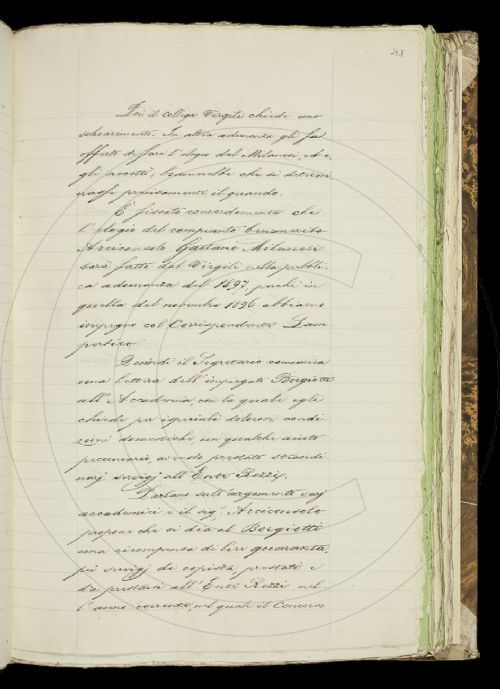 Poi il collega Virgili chiede uno
schiarimento. In altra adunanza gli fu
offerto di fare l'elogio del Milanesi, ed e-
gli accettò; bramerebbe che si determi
nasse precisamente il quando.
È fissato concordemente che
l'elogio del compianto benemerito
Arciconsolo Gaetano Milanesi
sarà fatto dal Virgili nella pubbli-
ca adunanza del 1897, perché in
quella del novembre 1896 abbiamo
impegno col Corrispondente Dam
Quindi il Segretario comunica
una lettera dell'impiegato Borgiotti
all'Accademia, con la quale egli
chiede per speciali dolorose condi
zioni domestiche, un qualche aiuto
pecuniario, avendo prestato straordi
narj servigj all'Ente Rezzi.
Parlano sull'argomento varj
accademici e il sig.r Arciconsolo
propone che si dia al Borgiotti
una ricompensa di lire quaranta,
pei servigj di copista, prestati e
da prestarsi all'Ente Rezzi nel
l'anno corrente, nel quale il Concorso